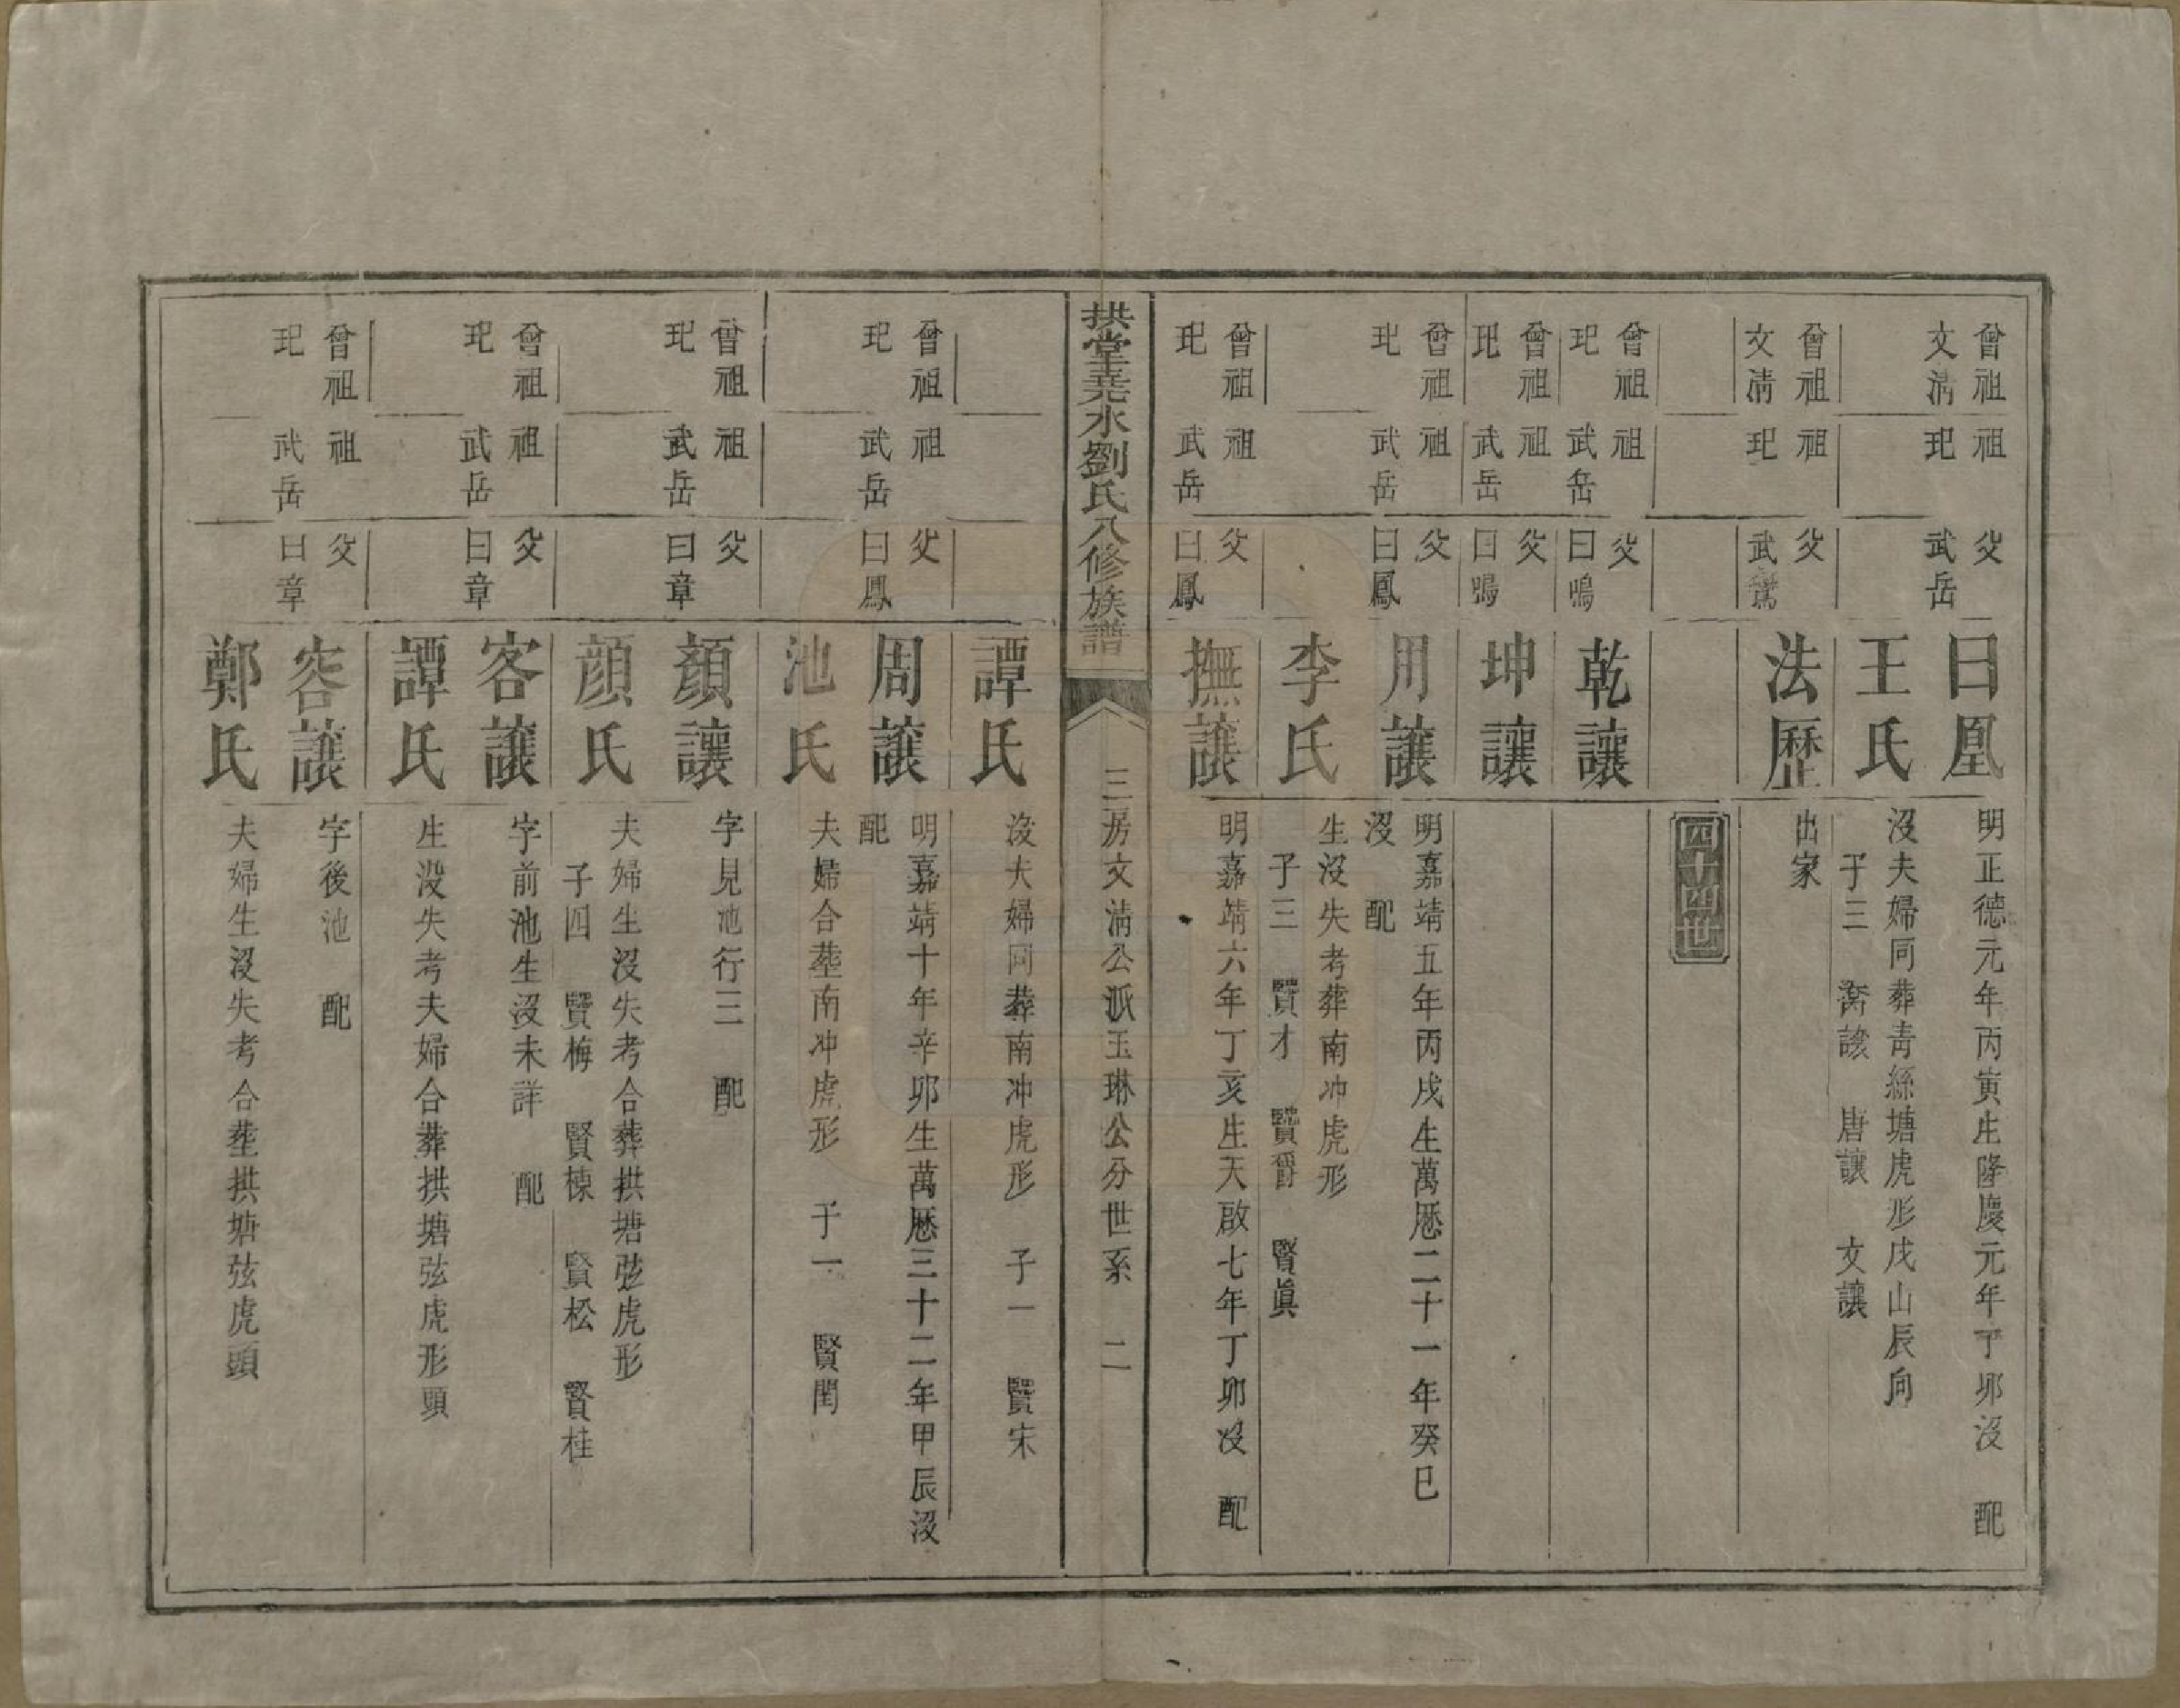 曾祖
文淸
祖
玘
父
武岳
曰凰
明正德元年丙寅生隆慶元年丁卯沒 配
王氏
沒夫婦同葬靑絲塘虎形戌山辰向
子三 唐讓 文讓
曾祖
文淸
祖
玘
父
武
法歷
出家
四十四世
曾祖
玘
祖
武岳
父
曰鳴
乾讓
曾祖
玘
祖
武岳
父
曰鳴
坤讓
曾祖
玘
祖
武岳
父
曰鳳
用讓
明嘉靖五年丙戌生萬曆二十一年癸巳
沒 配
李氏
生沒失考葬南冲虎形
子三 賢才 賢爵 賢眞
曾祖
玘
祖
武岳
父
曰鳳
撫讓
明嘉靖六年丁亥生天啟七年丁卯沒 配
拱堂堯水劉氏八修族譜
三房文淸公派玉琳公分世系 二
譚氏
沒夫婦同葬南冲虎形 子一 賢宋
曾祖
玘
祖
武岳
父
曰鳳
周讓
明嘉靖十年辛卯生萬曆三十二年甲辰沒
配
池氏
夫婦合葬南冲虎形 子一 賢閏
曾祖
玘
祖
武岳
父
曰章
顏讓
字見池行三 配
顏氏
夫婦生沒失考合葬拱塘弦虎形
子四 賢梅 賢棟 賢松 賢桂
曾祖
玘
祖
武岳
父
曰章
客讓
字前池生沒未詳 配
譚氏
生沒失考夫婦合葬拱塘弦虎形頭
曾祖
玘
祖
武岳
父
曰章
容讓
字後池 配
鄭氏
夫婦生沒失考合葬拱塘弦虎頭